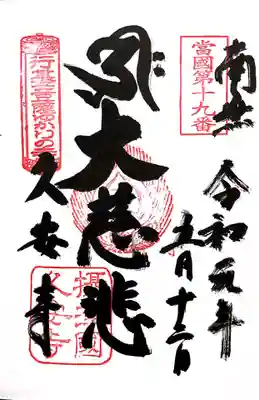 奉拝
當國第十九番
令和元年
五月十二日
大慈悲
行基菩薩ゆかりの
久安寺
摂津國
久安寺